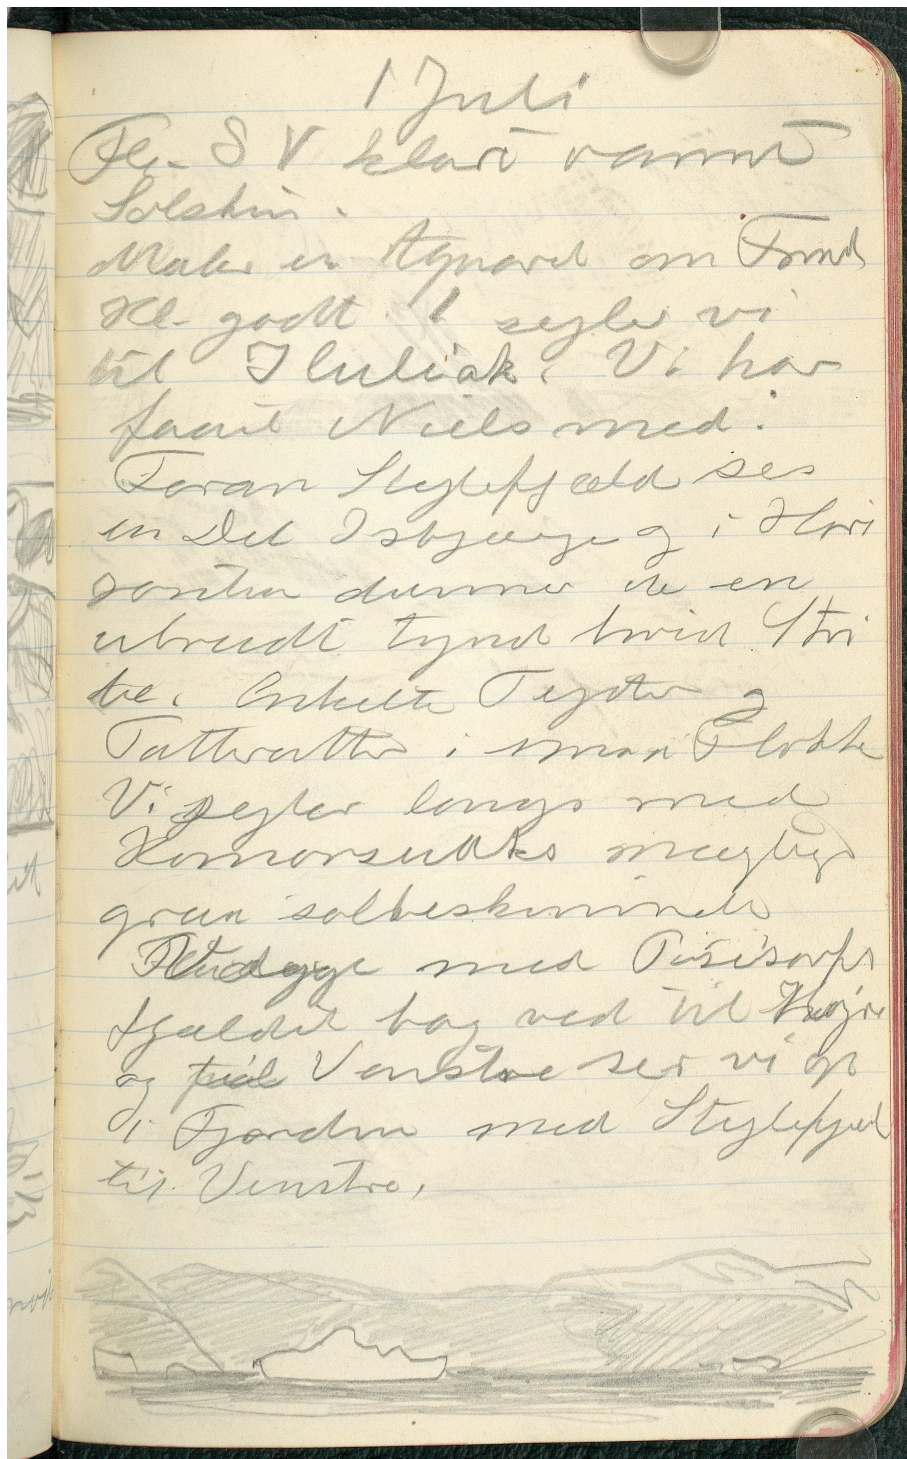 1 Juli
Fl. SV klart varmt
Solskin.
Maler en Aqvarel om Form
Kl. godt 1 segler vi
til Iluliak. Vi har
faaet Niels med.
Foran Steglefjæld ses
en Del Isbjerge og i Hori
zonten danner de en
ubrudt tynd hvid Stri
be. Enkelte Tejster og
Tatteratter i smaa Flokke
Vi segler langs med
mægtige
grøn solbeskinnede
med
Fjældet bag ved til Højre
og Venstre ser vi op
i Fjorden med Steglefjæld
til Venstre.